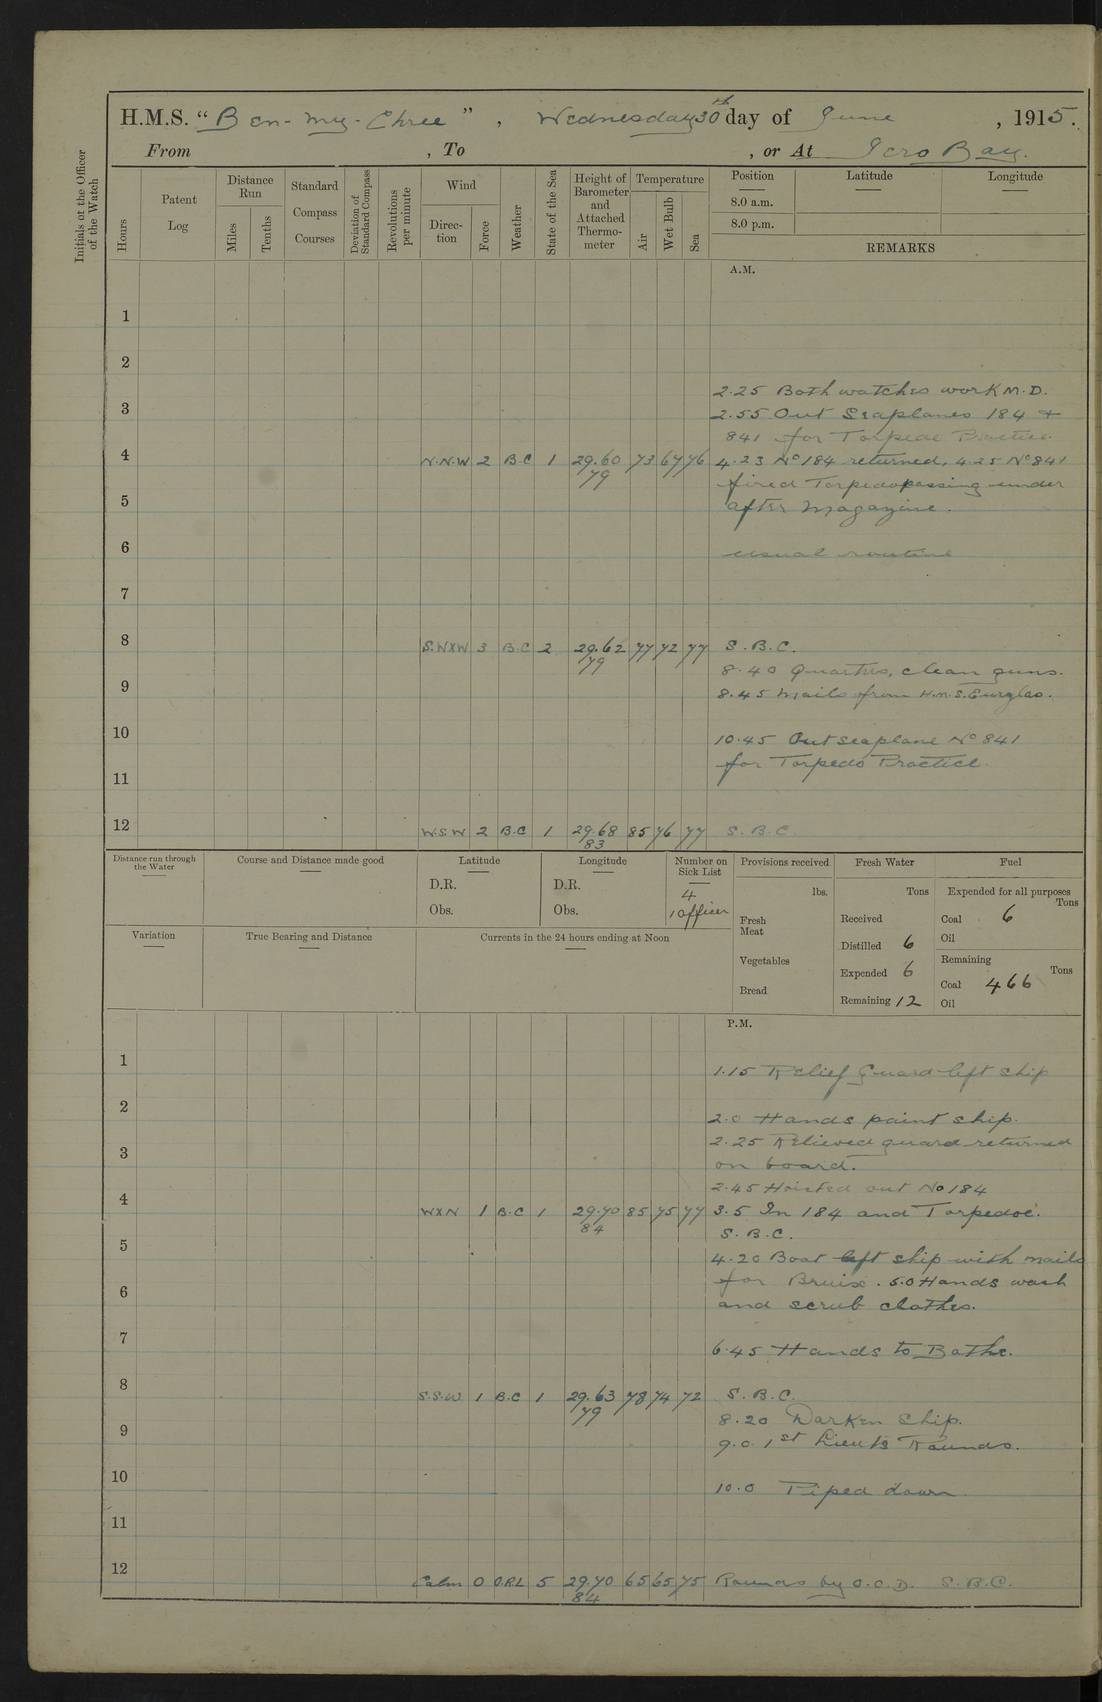 H.M.S. "Ben-my-Chree", Wednesday 30th day of June, 1915.
From , To , or At Iero Bay.
Initials of the Officer of the Watch
Hours
Patent Log
Distance Run
Miles
Tenths
Standard Compass Courses
Deviation of Standard Compass
Revolutions per minute
Wind
Direction
Force
Weather
State of the Sea
Height of Barometer and Attached Thermometer
Temperature
Air
Wet Bulb
Sea
Position Latitude Longitude
8.0 a.m.
8.0 p.m.
REMARKS
A.M.
1
2
2.25 Both watches work M.D.
3
2.55 Out Seaplanes 184 +
841 for Torpedo Practice.
4 N.N.W 2 B.C 1 29.60 73 67 76 4.23 No 184 returned, 4.25 No 841
79
fired Torpedo passing under
5
after magazine.
6
usual routine
7
8 S.WXW 3 B.C 2 29.62 77 72 77 S.B.C.
79
8.40 Quarters, clean guns.
9
8.45 Mails from H.M.S.
10
10.45 Out seaplane No 841
for Torpedo Practice.
11
12 W.S.W 2 B.C 1 29.68 85 76 77 S.B.C.
83
Distance run through the Water
Course and Distance made good
Latitude
D.R.
Obs.
Longitude
D.R.
Obs.
Number on Sick List
4
1 officer
Provisions received
lbs.
Fresh Meat
Vegetables
Bread
Fresh Water
Tons
Received
Distilled 6
Expended 6
Remaining 12
Fuel
Expended for all purposes
Tons
Coal 6
Oil
Remaining
Tons
Coal 466
Oil
Variation
True Bearing and Distance
Currents in the 24 hours ending at Noon
P.M.
1
1.15 Relief Guard left ship
2
2.0 Hands paint ship.
2.25 Relieved guard returned
3
on board.
2.45 Hoisted out No 184
4 WXN 1 B.C 1 29.70 85 75 77 3.5 In 184 and Torpedoe.
84
S.B.C.
5
4.20 Boat left ship with mails
for Bruix. 5.0 Hands wash
6
and scrub clothes.
7
6.45 Hands to Bathe.
8 S.S.W. 1 B.C 1 29.63 78 74 72 S.B.C.
79
8.20 Darken Ship.
9
9.0 1st Lieut's Rounds.
10
10.0 Piped down
11
12 Calm 0 O.R.L 5 29.70 65 65 75 Rounds by O.O.D. S.B.C.
84